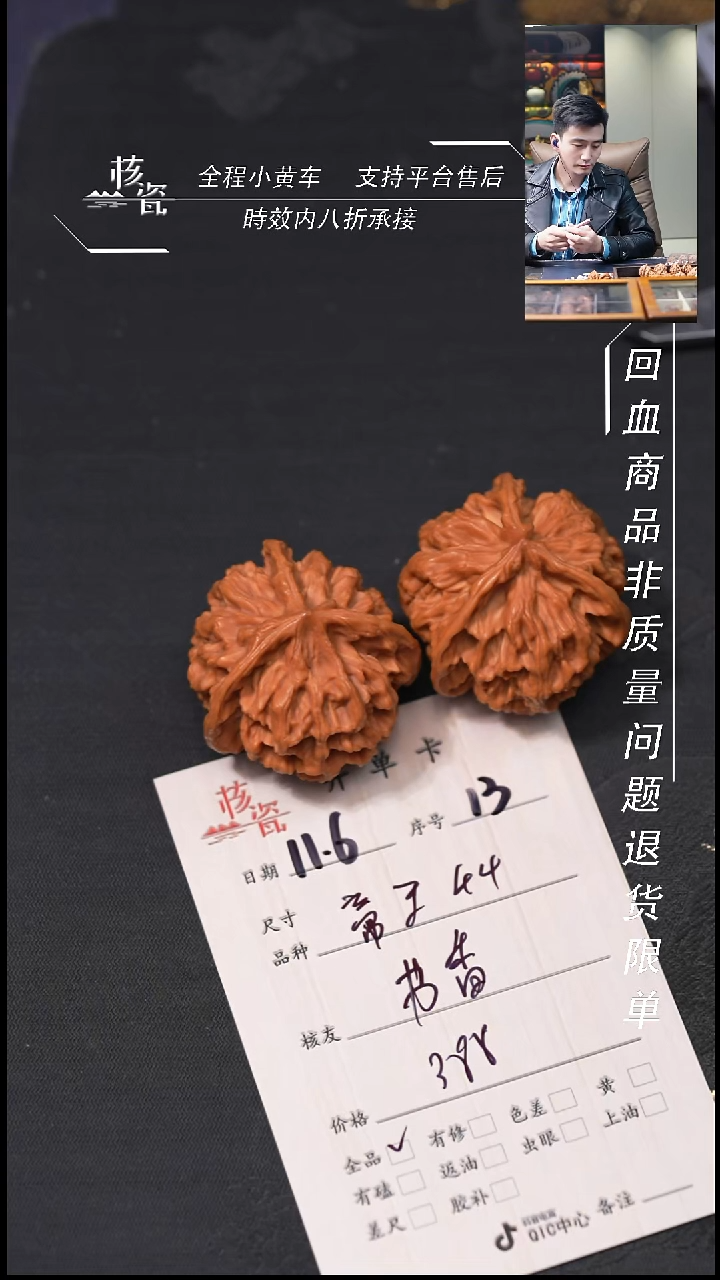 核瓷
全程小黄车 支持平台售后
時效内八折承接
回血商品非质量问题退货限单
开单卡
核瓷
日期 11.6 序号 13
尺寸
品种 帝王 44
核友 书香
价格 398
全品 ✓ 有修 色差 黄
有磕 返油 虫眼 上油
差尺 胶补
抖音电商
QIC中心 备注